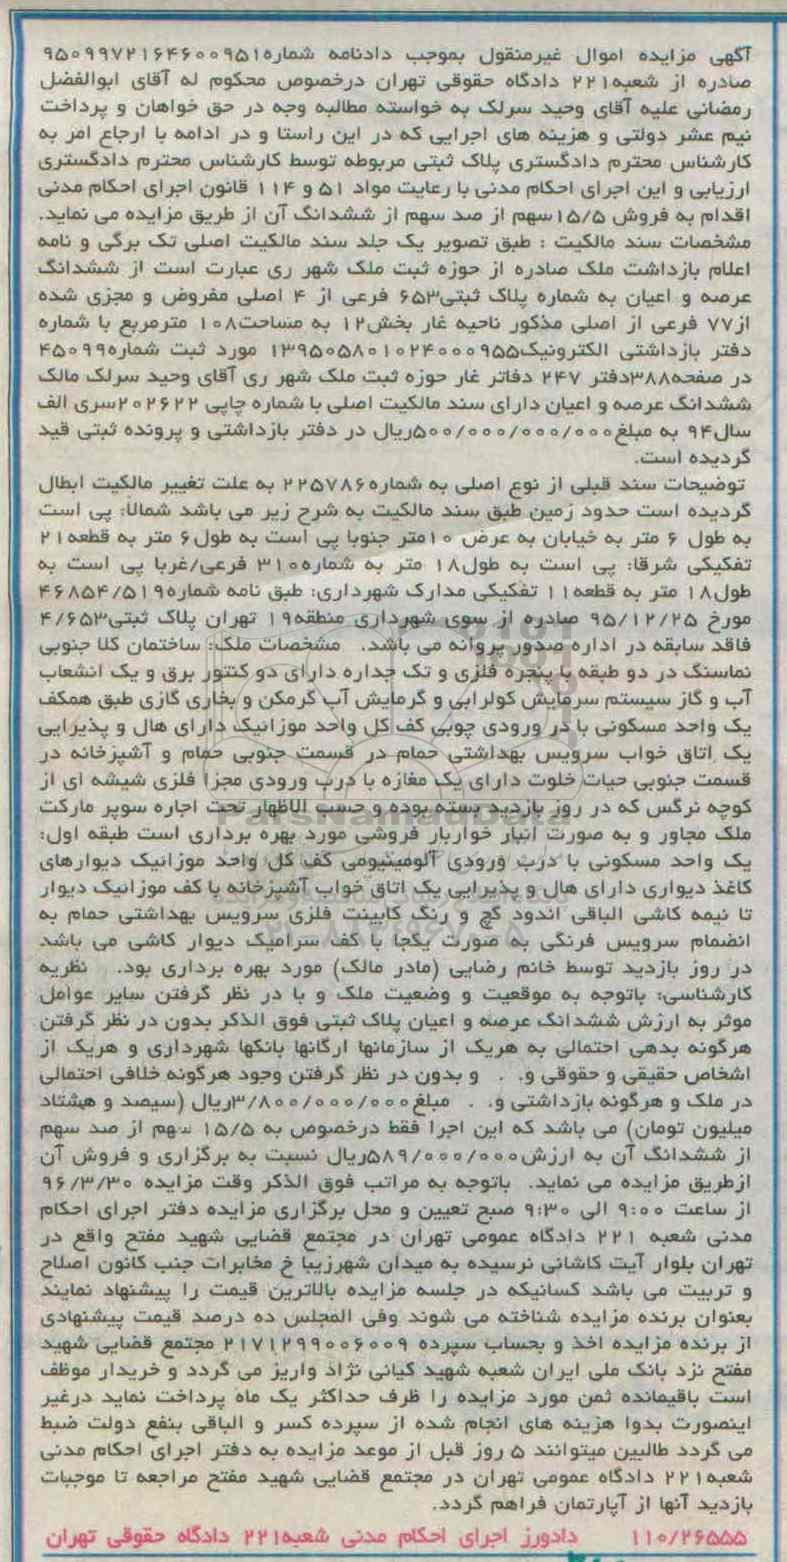 آگهی مزایده اموال غیرمنقول بموجب دادنامه شماره۹۵۰۹۹۷۲۱۶۴۶۰۰۹۵۱
صادره از شعبه۲۲۱ دادگاه حقوقی تهران درخصوص محکوم له آقای ابوالفضل
رمضانی علیه آقای وحید سرلک به خواسته مطالبه وجه در حق خواهان و پرداخت
نیم عشر دولتی و هزینه های اجرایی که در این راستا و در ادامه با ارجاع امر به
کارشناس محترم دادگستری پلاک ثبتی مربوطه توسط کارشناس محترم دادگستری
ارزیابی و این اجرای احکام مدنی با رعایت مواد ۵۱ و ۱۱۴ قانون اجرای احکام مدنی
اقدام به فروش ۱۵/۵سهم از صد سهم از ششدانگ آن از طریق مزایده می نماید.
مشخصات سند مالکیت : طبق تصویر یک جلد سند مالکیت اصلی تک برگی و نامه
اعلام بازداشت ملک صادره از حوزه ثبت ملک شهر ری عبارت است از ششدانگ
عرصه و اعیان به شماره پلاک ثبتی۶۵۳ فرعی از ۴ اصلی مفروض و مجزی شده
از۷۷ فرعی از اصلی مذکور ناحیه غار بخش۱۲ به مساحت۱۰۸ مترمربع با شماره
دفتر بازداشتی الکترونیک۱۳۹۵۰۵۸۰۱۰۲۴۰۰۰۹۵۵ مورد ثبت شماره۴۵۰۹۹
در صفحه۳۸۸دفتر ۲۴۷ دفاتر غار حوزه ثبت ملک شهر ری آقای وحید سرلک مالک
ششدانگ عرصه و اعیان دارای سند مالکیت اصلی با شماره چاپی ۲۰۲۶۲۲سری الف
سال۹۴ به مبلغ۵۰۰/۰۰۰/۰۰۰/۰۰۰ریال در دفتر بازداشتی و پرونده ثبتی قید
گردیده است.
توضیحات سند قبلی از نوع اصلی به شماره۲۲۵۷۸۶ به علت تغییر مالکیت ابطال
گردیده است حدود زمین طبق سند مالکیت به شرح زیر می باشد شمالا: پی است
به طول ۶ متر به خیابان به عرض ۱۰متر جنوبا پی است به طول۶ متر به قطعه۲۱
تفکیکی شرقا: پی است به طول۱۸ متر به شماره۳۱۰ فرعی/غربا پی است به
طول۱۸ متر به قطعه۱۱ تفکیکی مدارک شهرداری: طبق نامه شماره۴۶۸۵۴/۵۱۹
مورخ ۹۵/۱۲/۲۵ صادره از سوی شهرداری منطقه۱۹ تهران پلاک ثبتی۴/۶۵۳
فاقد سابقه در اداره صدور پروانه می باشد. مشخصات ملک: ساختمان کلا جنوبی
نماسنگ در دو طبقه با پنجره فلزی و تک جداره دارای دو کنتور برق و یک انشعاب
آب و گاز سیستم سرمایش کولرابی و گرمایش آب گرمکن و بخاری گازی طبق همکف
یک واحد مسکونی با در ورودی چوبی کف کل واحد موزانیک دارای هال و پذیرایی
یک اتاق خواب سرویس بهداشتی حمام در قسمت جنوبی حمام و آشپزخانه در
قسمت جنوبی حیات خلوت دارای یک مغازه با درب ورودی مجزا فلزی شیشه ای از
کوچه نرگس که در روز بازدید بسته بوده و حسب الاظهار تحت اجاره سوپر مارکت
ملک مجاور و به صورت انبار خواربار فروشی مورد بهره برداری است طبقه اول:
یک واحد مسکونی با درب ورودی آلومینیومی کف کل واحد موزانیک دیوارهای
کاغذ دیواری دارای هال و پذیرایی یک اتاق خواب آشپزخانه با کف موزانیک دیوار
تا نیمه کاشی الباقی اندود گچ و رنگ کابینت فلزی سرویس بهداشتی حمام به
انضمام سرویس فرنگی به صورت یکجا با کف سرامیک دیوار کاشی می باشد
در روز بازدید توسط خانم رضایی (مادر مالک) مورد بهره برداری بود. نظریه
کارشناسی: باتوجه به موقعیت و وضعیت ملک و با در نظر گرفتن سایر عوامل
موثر به ارزش ششدانگ عرصه و اعیان پلاک ثبتی فوق الذکر بدون در نظر گرفتن
هرگونه بدهی احتمالی به هریک از سازمانها ارگانها بانکها شهرداری و هریک از
اشخاص حقیقی و حقوقی و. . و بدون در نظر گرفتن وجود هرگونه خلافی احتمالی
در ملک و هرگونه بازداشتی و. . مبلغ۳/۸۰۰/۰۰۰/۰۰۰ریال (سیصد و هشتاد
میلیون تومان) می باشد که این اجرا فقط درخصوص به ۱۵/۵ سهم از صد سهم
از ششدانگ آن به ارزش۵۸۹/۰۰۰/۰۰۰ریال نسبت به برگزاری و فروش آن
ازطریق مزایده می نماید. باتوجه به مراتب فوق الذکر وقت مزایده ۹۶/۳/۳۰
از ساعت ۹:۰۰ الی ۹:۳۰ صبح تعیین و محل برگزاری مزایده دفتر اجرای احکام
مدنی شعبه ۲۲۱ دادگاه عمومی تهران در مجتمع قضایی شهید مفتح واقع در
تهران بلوار آیت کاشانی نرسیده به میدان شهرزیبا خ مخابرات جنب کانون اصلاح
و تربیت می باشد کسانیکه در جلسه مزایده بالاترین قیمت را پیشنهاد نمایند
بعنوان برنده مزایده شناخته می شوند وفی المجلس ده درصد قیمت پیشنهادی
از برنده مزایده اخذ و بحساب سپرده ۲۱۷۱۲۹۹۰۰۶۰۰۹ مجتمع قضایی شهید
مفتح نزد بانک ملی ایران شعبه شهید کیانی نژاد واریز می گردد و خریدار موظف
است باقیمانده ثمن مورد مزایده را ظرف حداکثر یک ماه پرداخت نماید درغیر
اینصورت بدوا هزینه های انجام شده از سپرده کسر و الباقی بنفع دولت ضبط
می گردد طالبین میتوانند ۵ روز قبل از موعد مزایده به دفتر اجرای احکام مدنی
شعبه۲۲۱ دادگاه عمومی تهران در مجتمع قضایی شهید مفتح مراجعه تا موجبات
بازدید آنها از آپارتمان فراهم گردد.
۱۱۰/۲۶۵۵۵ دادورز اجرای احکام مدنی شعبه۲۲۱ دادگاه حقوقی تهران